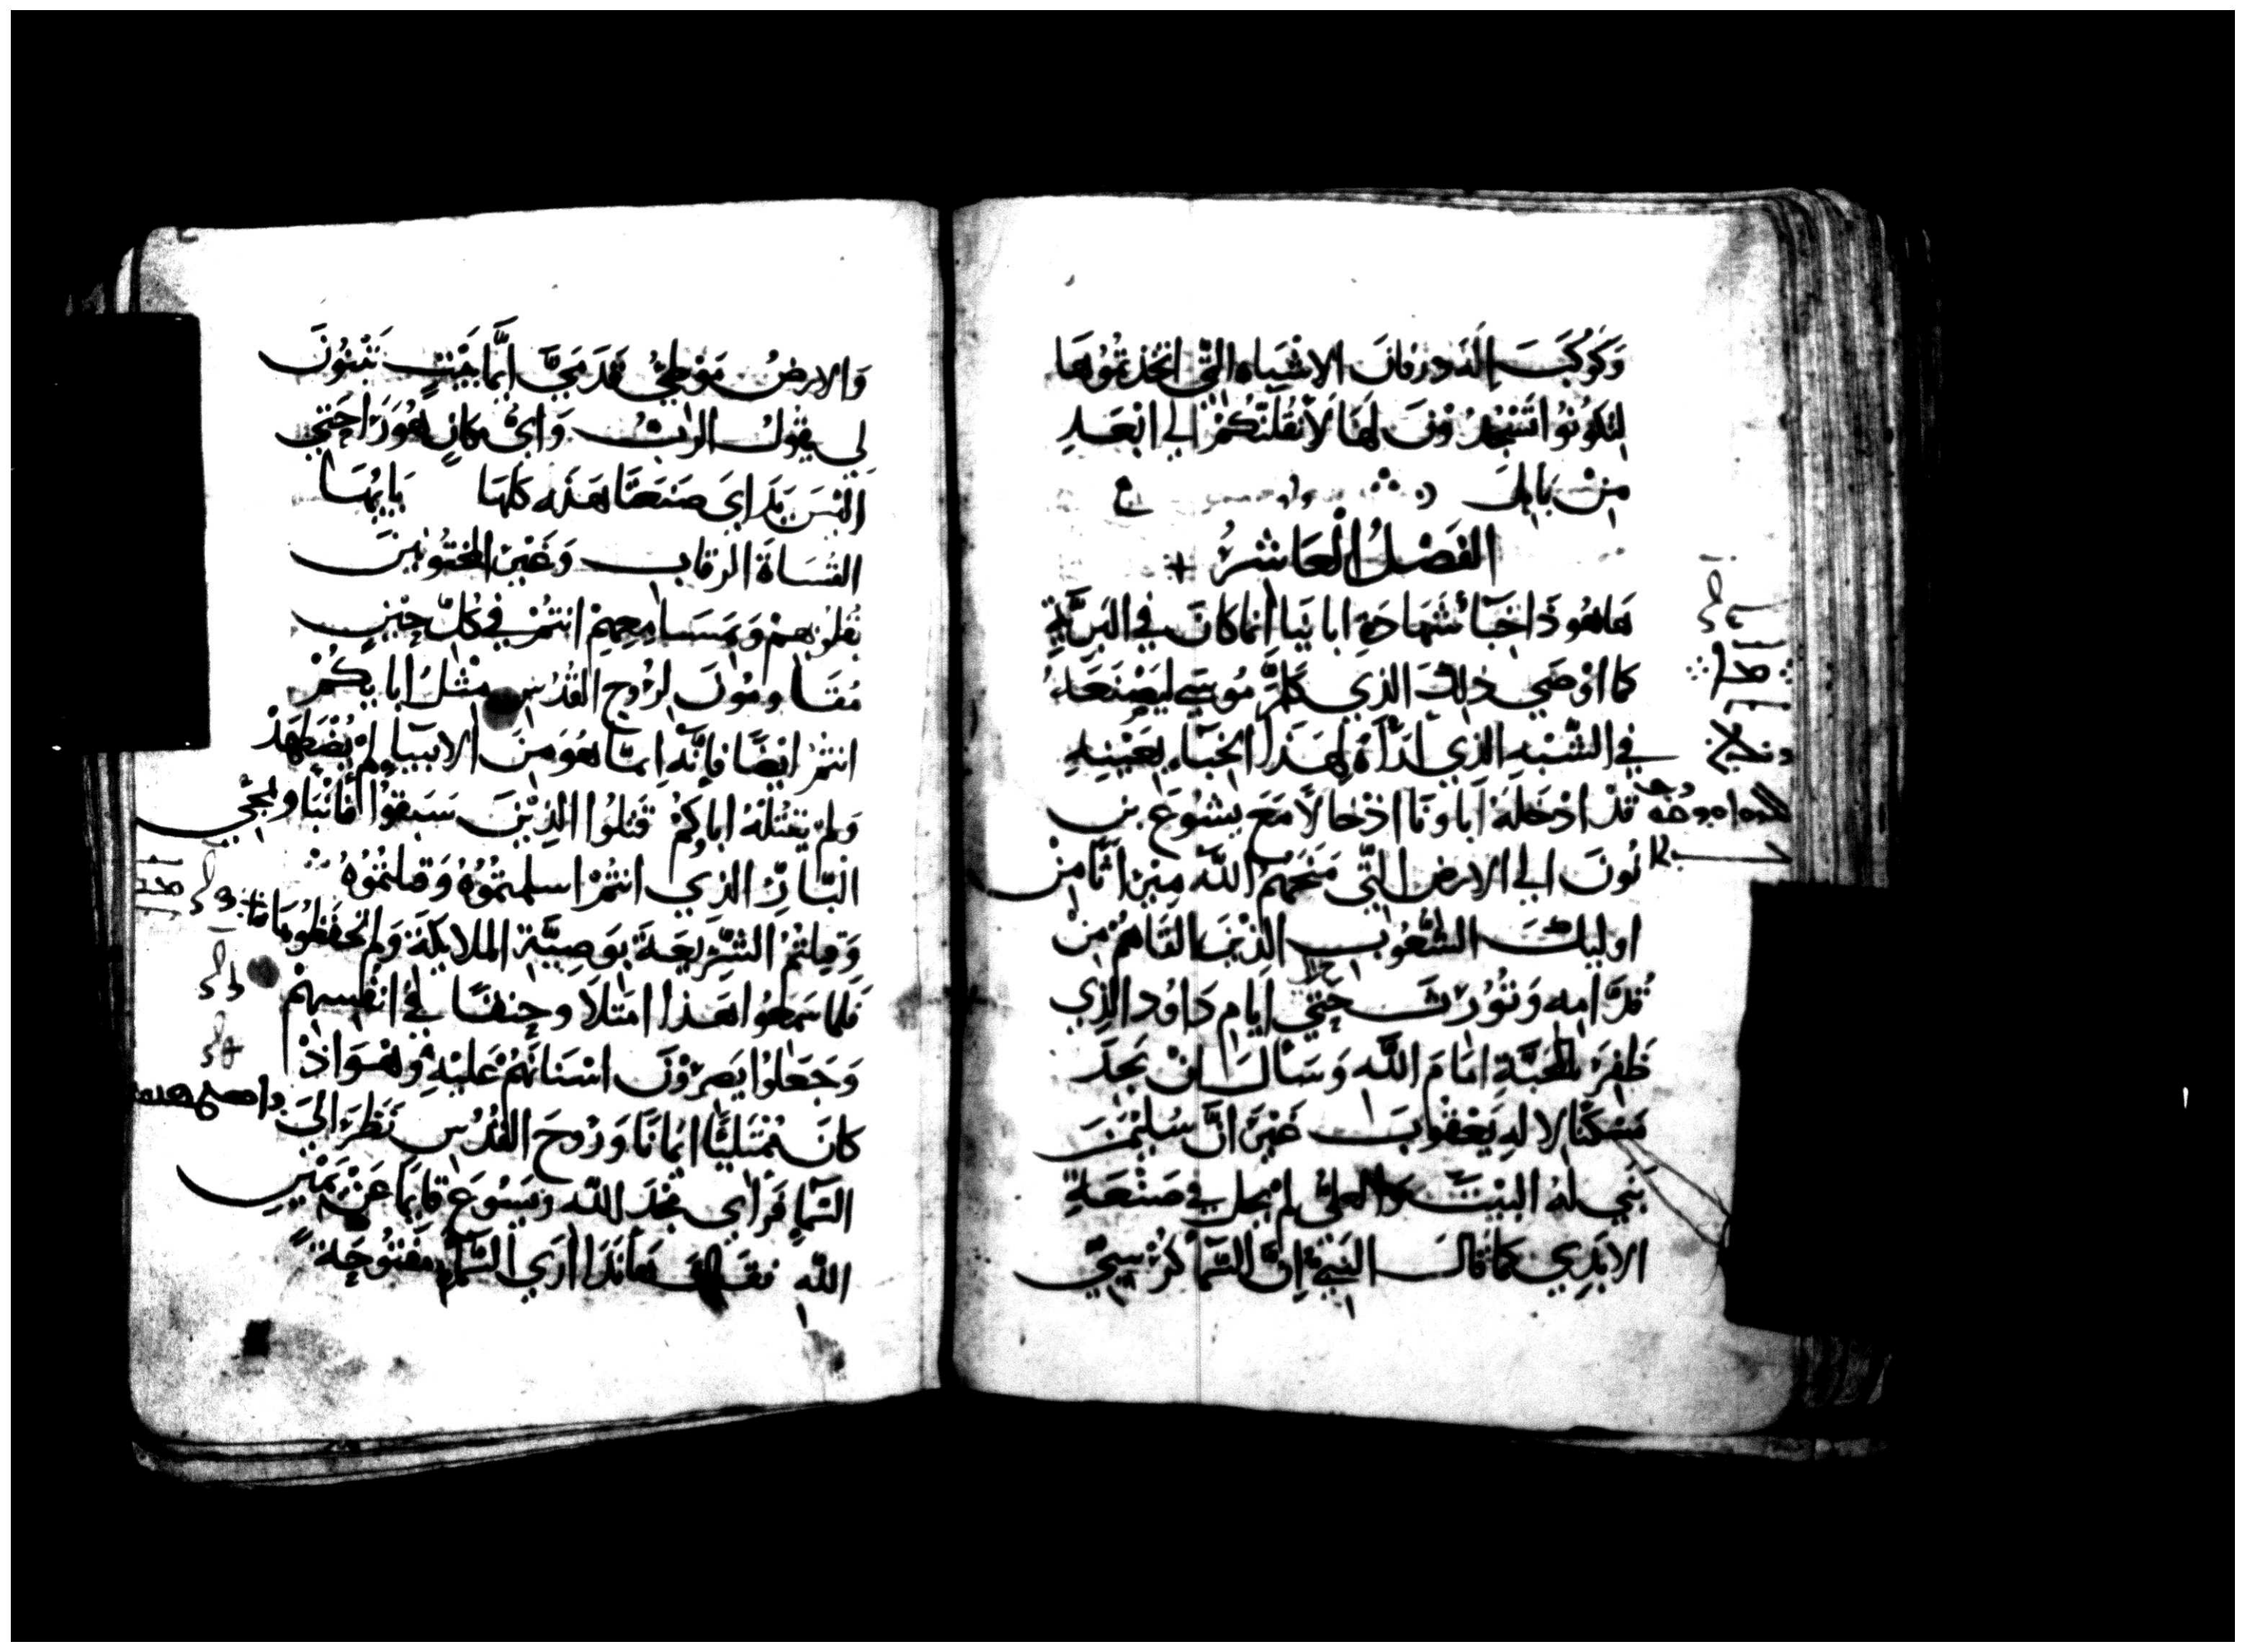 وَكَوكَبَ إلَدوزفان الاشياه التي اتخذتموها
لتكونوا تسجدون لها لأنقلنكم الي ابعد
من بابل
الفصل العاشر +
هاهوذا خباء شهادة ابائنا انما كان في البرية
كما اوصي ذلك الذي كلم موسي ليصنعه
في الشبه الذي اراه لهذا الخباء بعينه
قد ادخله اباونا ادخالا مع يشوع بن
نون الي الارض التي منحهم الله ميراثا من
اوليك الشعوب الذين القاهم من
قدامه وتورث حتي ايام داود الذي
ظفر بالمحبة امام الله وسال ان يجد
مسكنا لاله يعقوب غير ان سليمن
بني له البيت والعلي لم يحل في صنعة
الايدي كما قال النبي ان السما كرسيي
والارض موطي قدمي ايما بيت تبنون
لي يقول الرب واي مكان هو راحتي
اليس يداي صنعتا هذه كلها يا ايها
القساة الرقاب وغير المختونين
بقلوبهم ومسامعهم انتم في كل حين
مقاومون لروح القدس مثل ابايكم
انتم ايضا فانه ايما هو من الانبيا لم يضطهد
ولم يقتله اباكم قتلوا الذين سبقوا فانبأوا بمجي
البار الذي انتم اسلمتموه وقتلتموه
وقبلتم الشريعة بوصية الملايكة ولم تحفظوها
فلما سمعوا هذا امتلا وحنقا في انفسهم
وجعلوا يصرون اسنانهم عليه وهو اذ
كان ممتليا ايمانا وروح القدس نظر الي
السما فراي مجد الله ويسوع قايما عن يمين
الله فقال هانذا اري السما مفتوحة